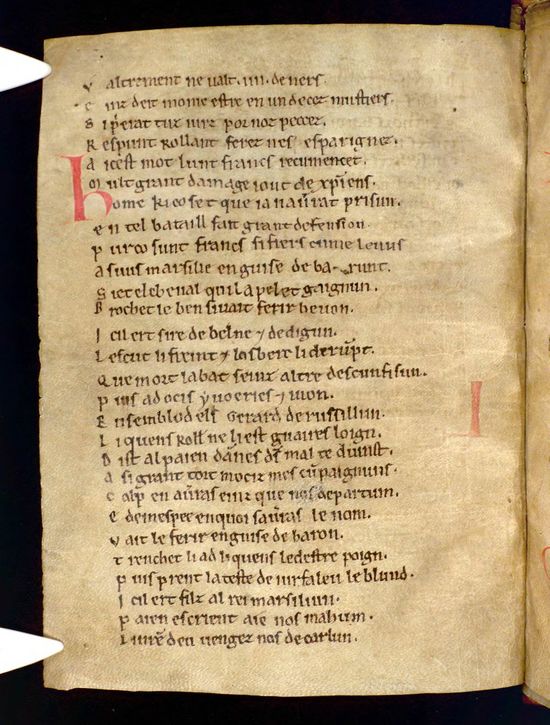 V altrement ne valt .iiii. deners
E inz deit monie estre en un de cez mustiers.
S i p̄ierat tuz iurz por noz peccez.
R espunt Rollant ferez nes esparignez.
A icest mot lunt francs recumencet.
M ult grant damage iout de xp̄iens.
h ome ki co set que ia naūrat prisun.
e n tel bataill fait grant defension.
p ur co sunt francs si fiers cume leuns
a s uus marsilie en guise de barunt.
S iet el cheual quil apelet gaignun.
B rochet le ben si uait ferir beuon.
I cil ert sire de belne ⁊ de digun.
L escut li freint ⁊ losberc li derūpt.
Q ue mort labat seinz altre descunfisun.
p uis ad ocis yuoeries ⁊ iuon.
E nsemblod els Gerard de russillun.
L i quens Roll̄ ne li est guaires loign.
D ist al paien dānes ds̄ mal te duinst.
A si grant tort mociz mes cūpaignuns.
C olp en aūras einz que nos departum.
e demespee enquoi saūras le nom.
V ait le ferir en guise de baron.
t renchet li ad li quens le destre poign.
p uis prent la teste de iurfaleu le blund.
I cil ert filz al rei marsiliun.
p aien escrient aie nos mahum.
L i nr̄e deu uengez nos de carlun.